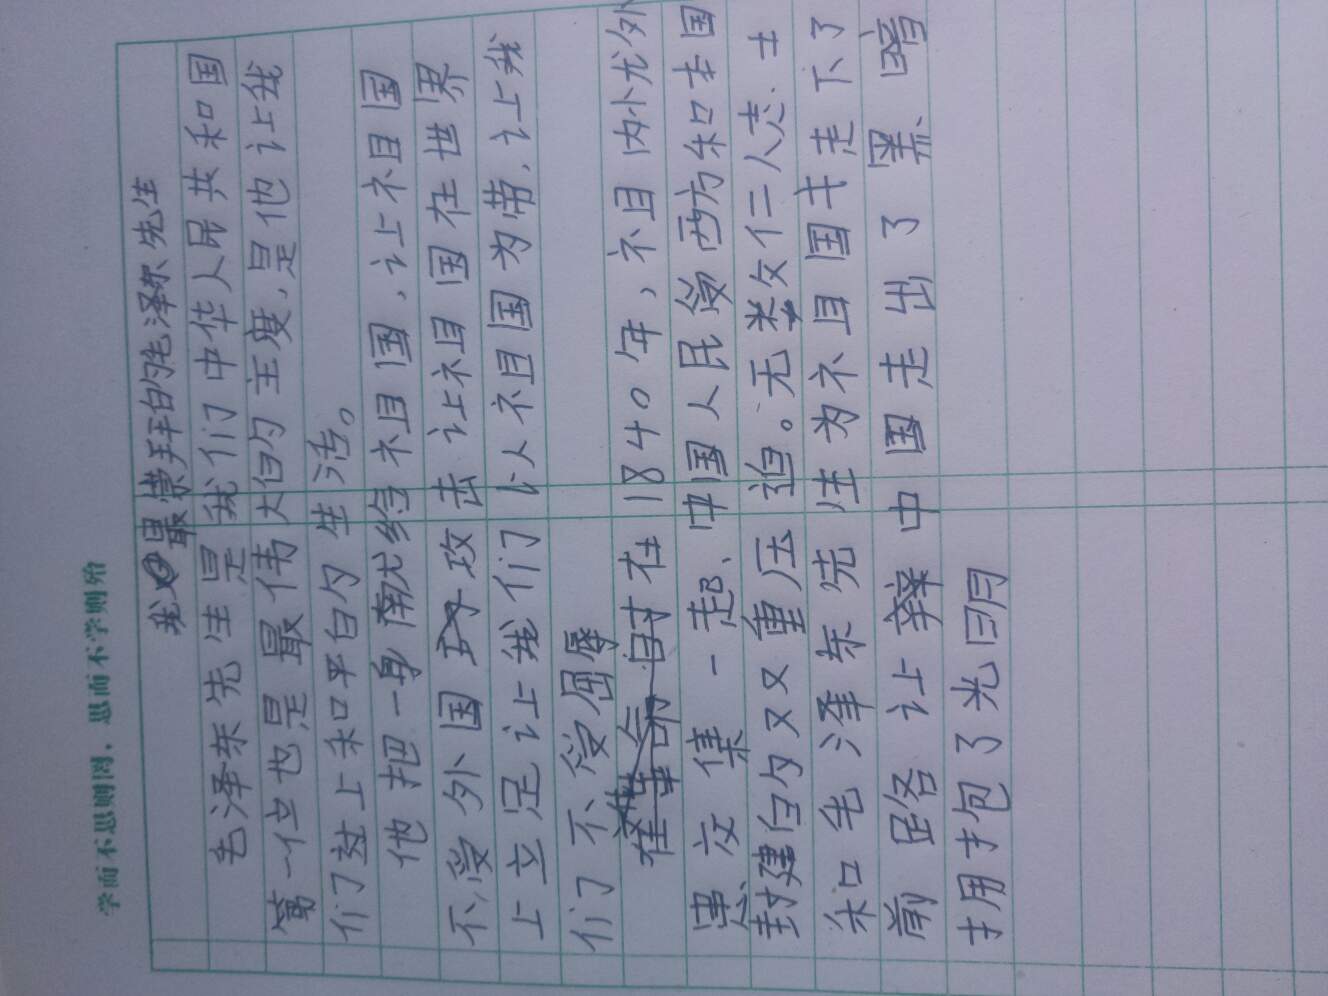 学而不思则罔，思而不学则殆
我最崇拜的毛泽东先生
毛泽东先生是我们中华人民共和国
第一位也是最伟大的主度，是他让我
们过上和平的生活。
他把一身献给祖国，让祖国
不受外国攻击让祖国在世界
上立足让我们以祖国为带，让我
们不受屈辱
在1840年、祖国内忧外
患交集一起、中国人民受西方和卡国
封建的又又重压迫。无数仁人志士
和毛泽东先生为祖国千走下了
前路让中国走出了黑暗
拥抱了光明